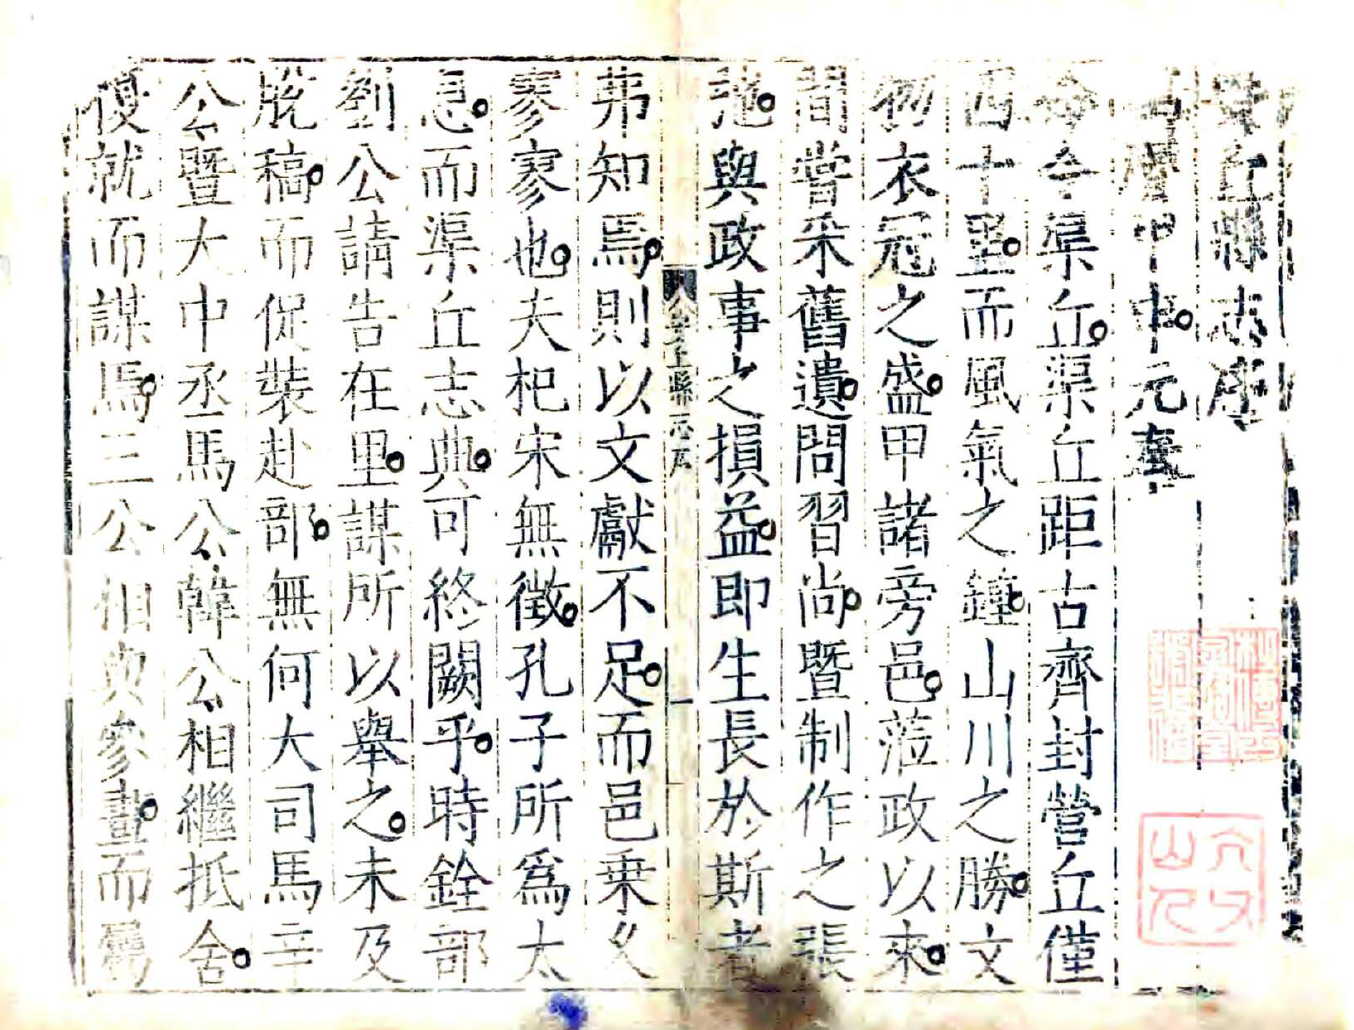 安丘縣志序
甲中元
今渠丘。渠丘距古齊封營丘僅
四十里。而風氣之鐘。山川之勝。文
物衣冠之盛。甲諸旁邑。蒞政以來。
間嘗采舊遺。問習尚。暨制作之張
弛。與政事之損益。即生長於斯者
安丘縣志序 一
弗知焉。則以文獻不足。而邑乗
寥寥也。夫杞宋無徵。孔子所爲太
息。而渠丘志典。可終闕乎。時銓部
劉公請告在里。謀所以舉之。未及
脫稿。而促裝赴部。無何大司馬辛
公暨大中丞馬公韓公相繼抵舍。
復就而謀焉。三公相與參畫。而屬